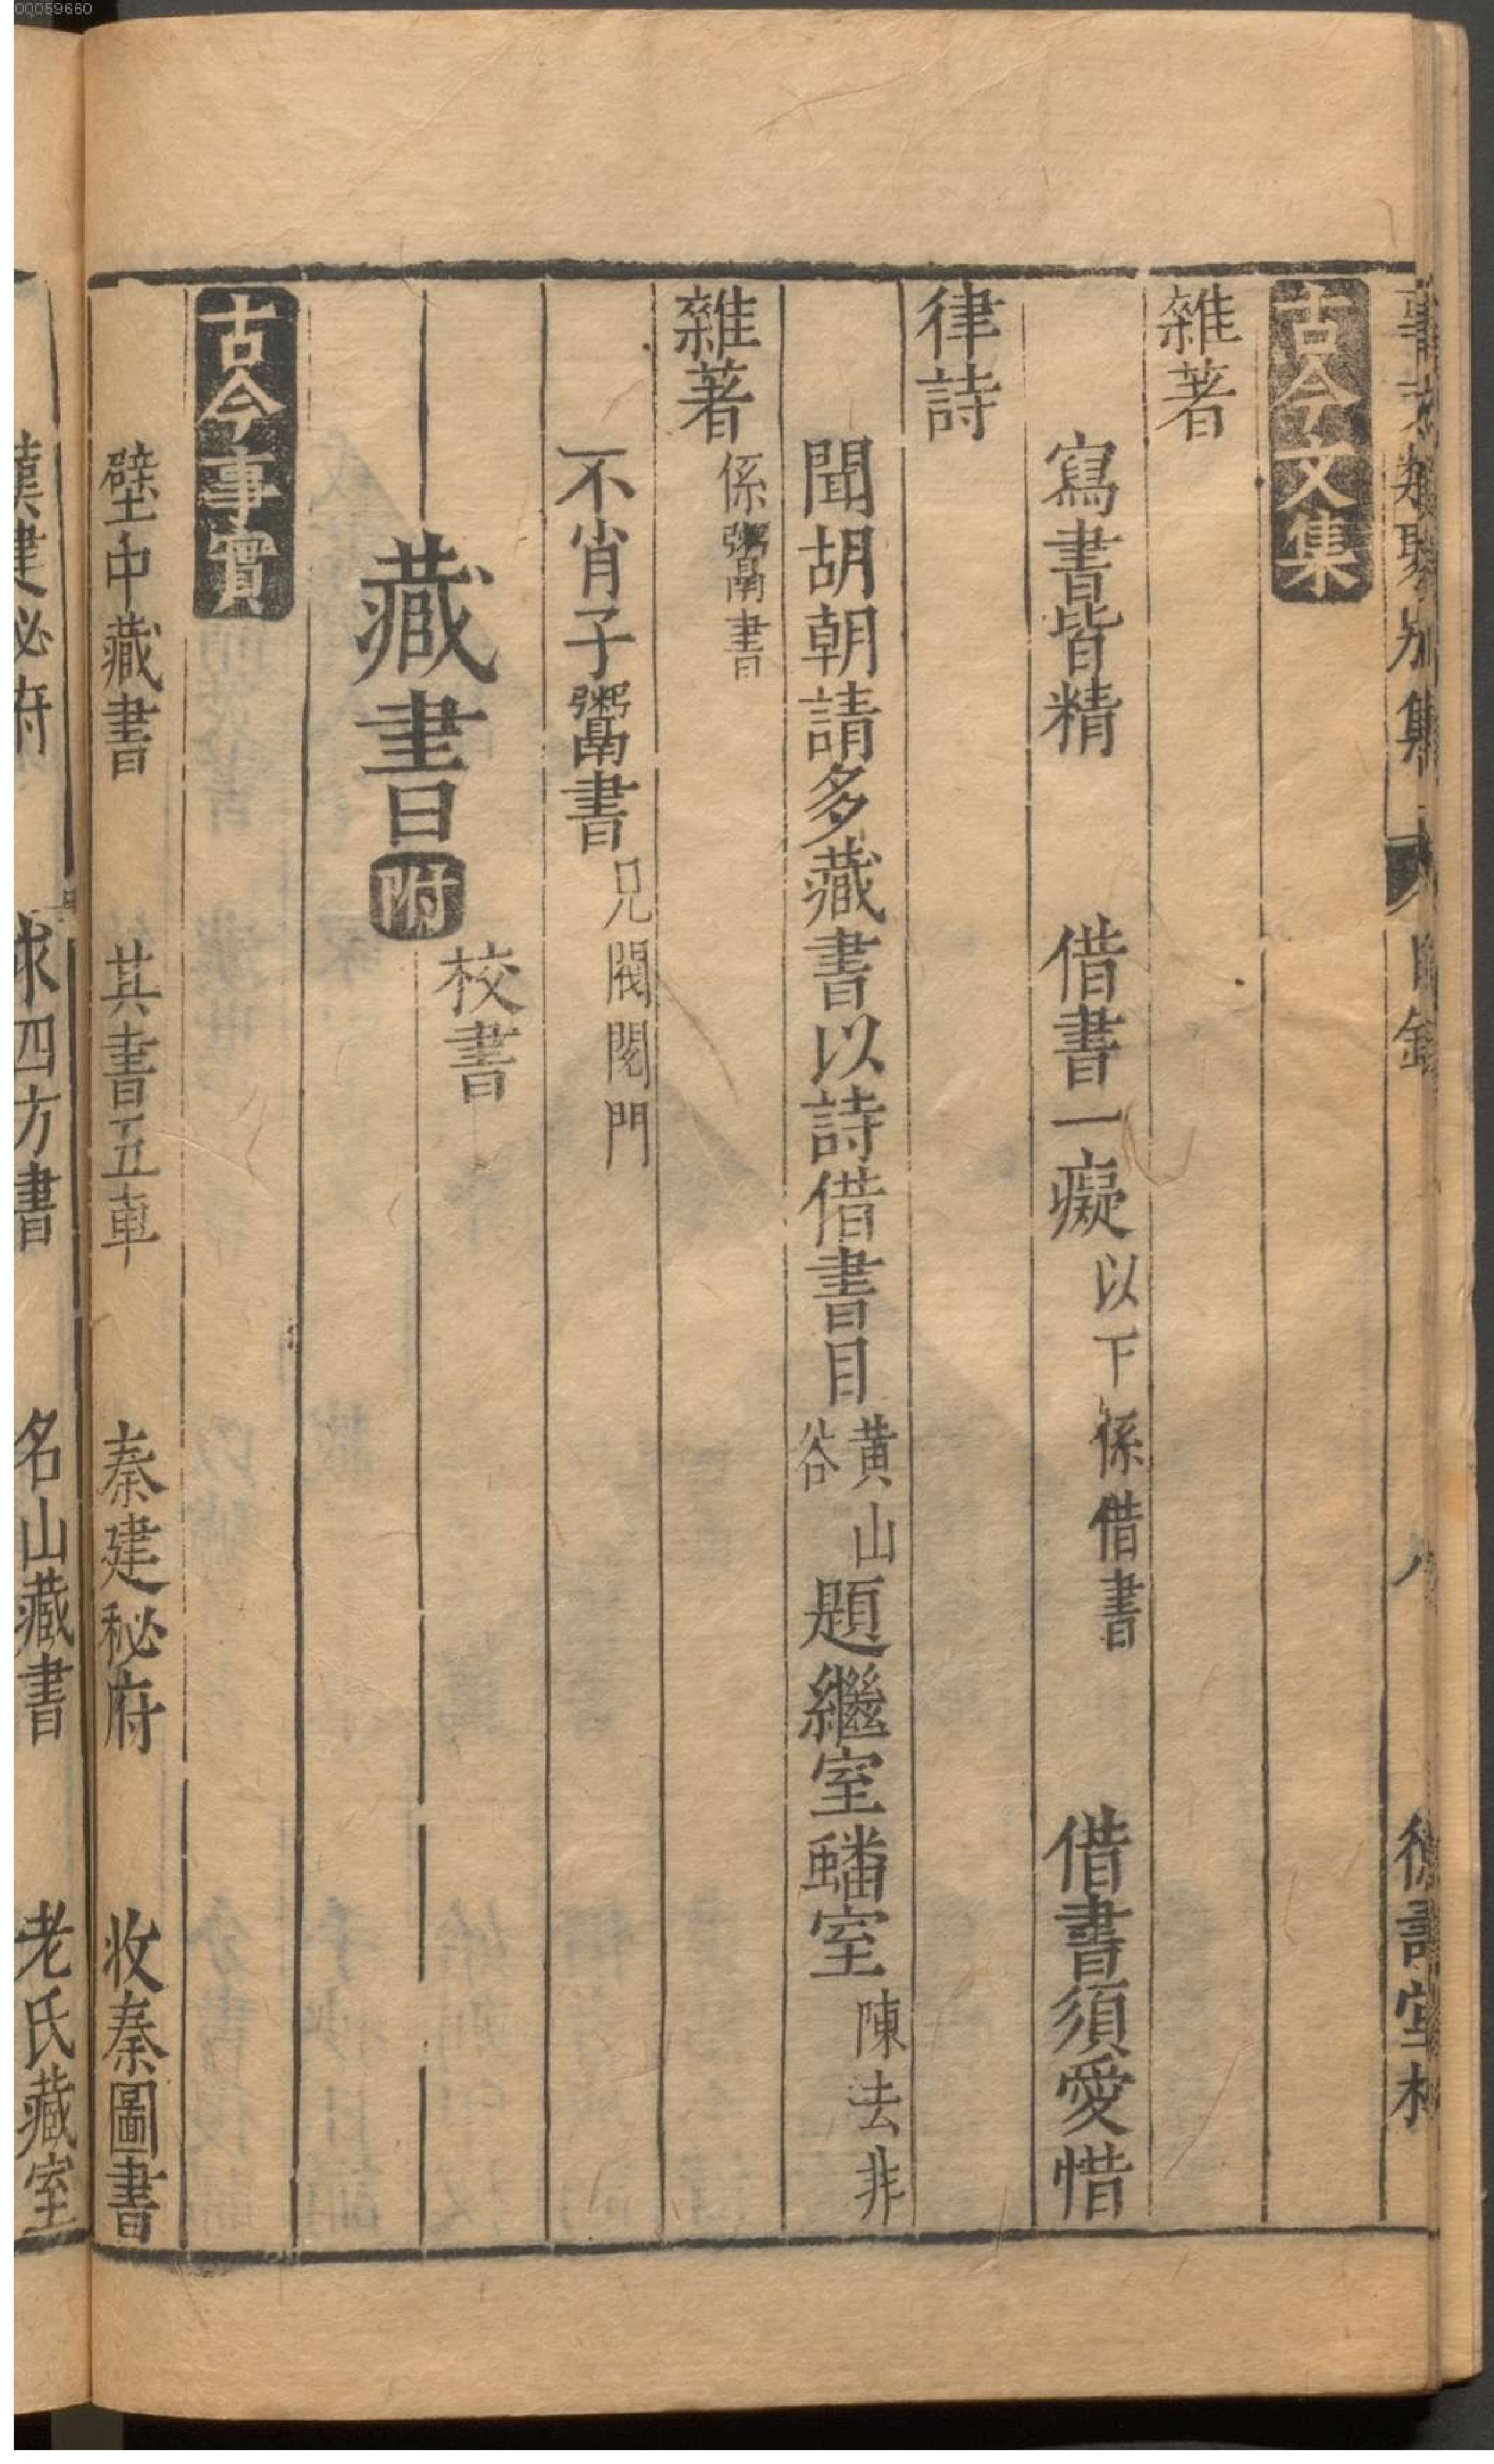 00059660
事文類聚别集 目錄 八 德壽堂梓
古今文集
雜著
寫書皆精 借書一癡 以下係借書 借書須愛惜
律詩
聞胡朝請多藏書以詩借書目 黄山谷 題繼室蟠室 陳去非
雜著 係鬻書
不肖子鬻書 兄閥閱門
藏書 附 校書
古今事實
壁中藏書 其書五車 秦建秘府 收秦圖書
漢建秘府 求四方書 名山藏書 老氏藏室